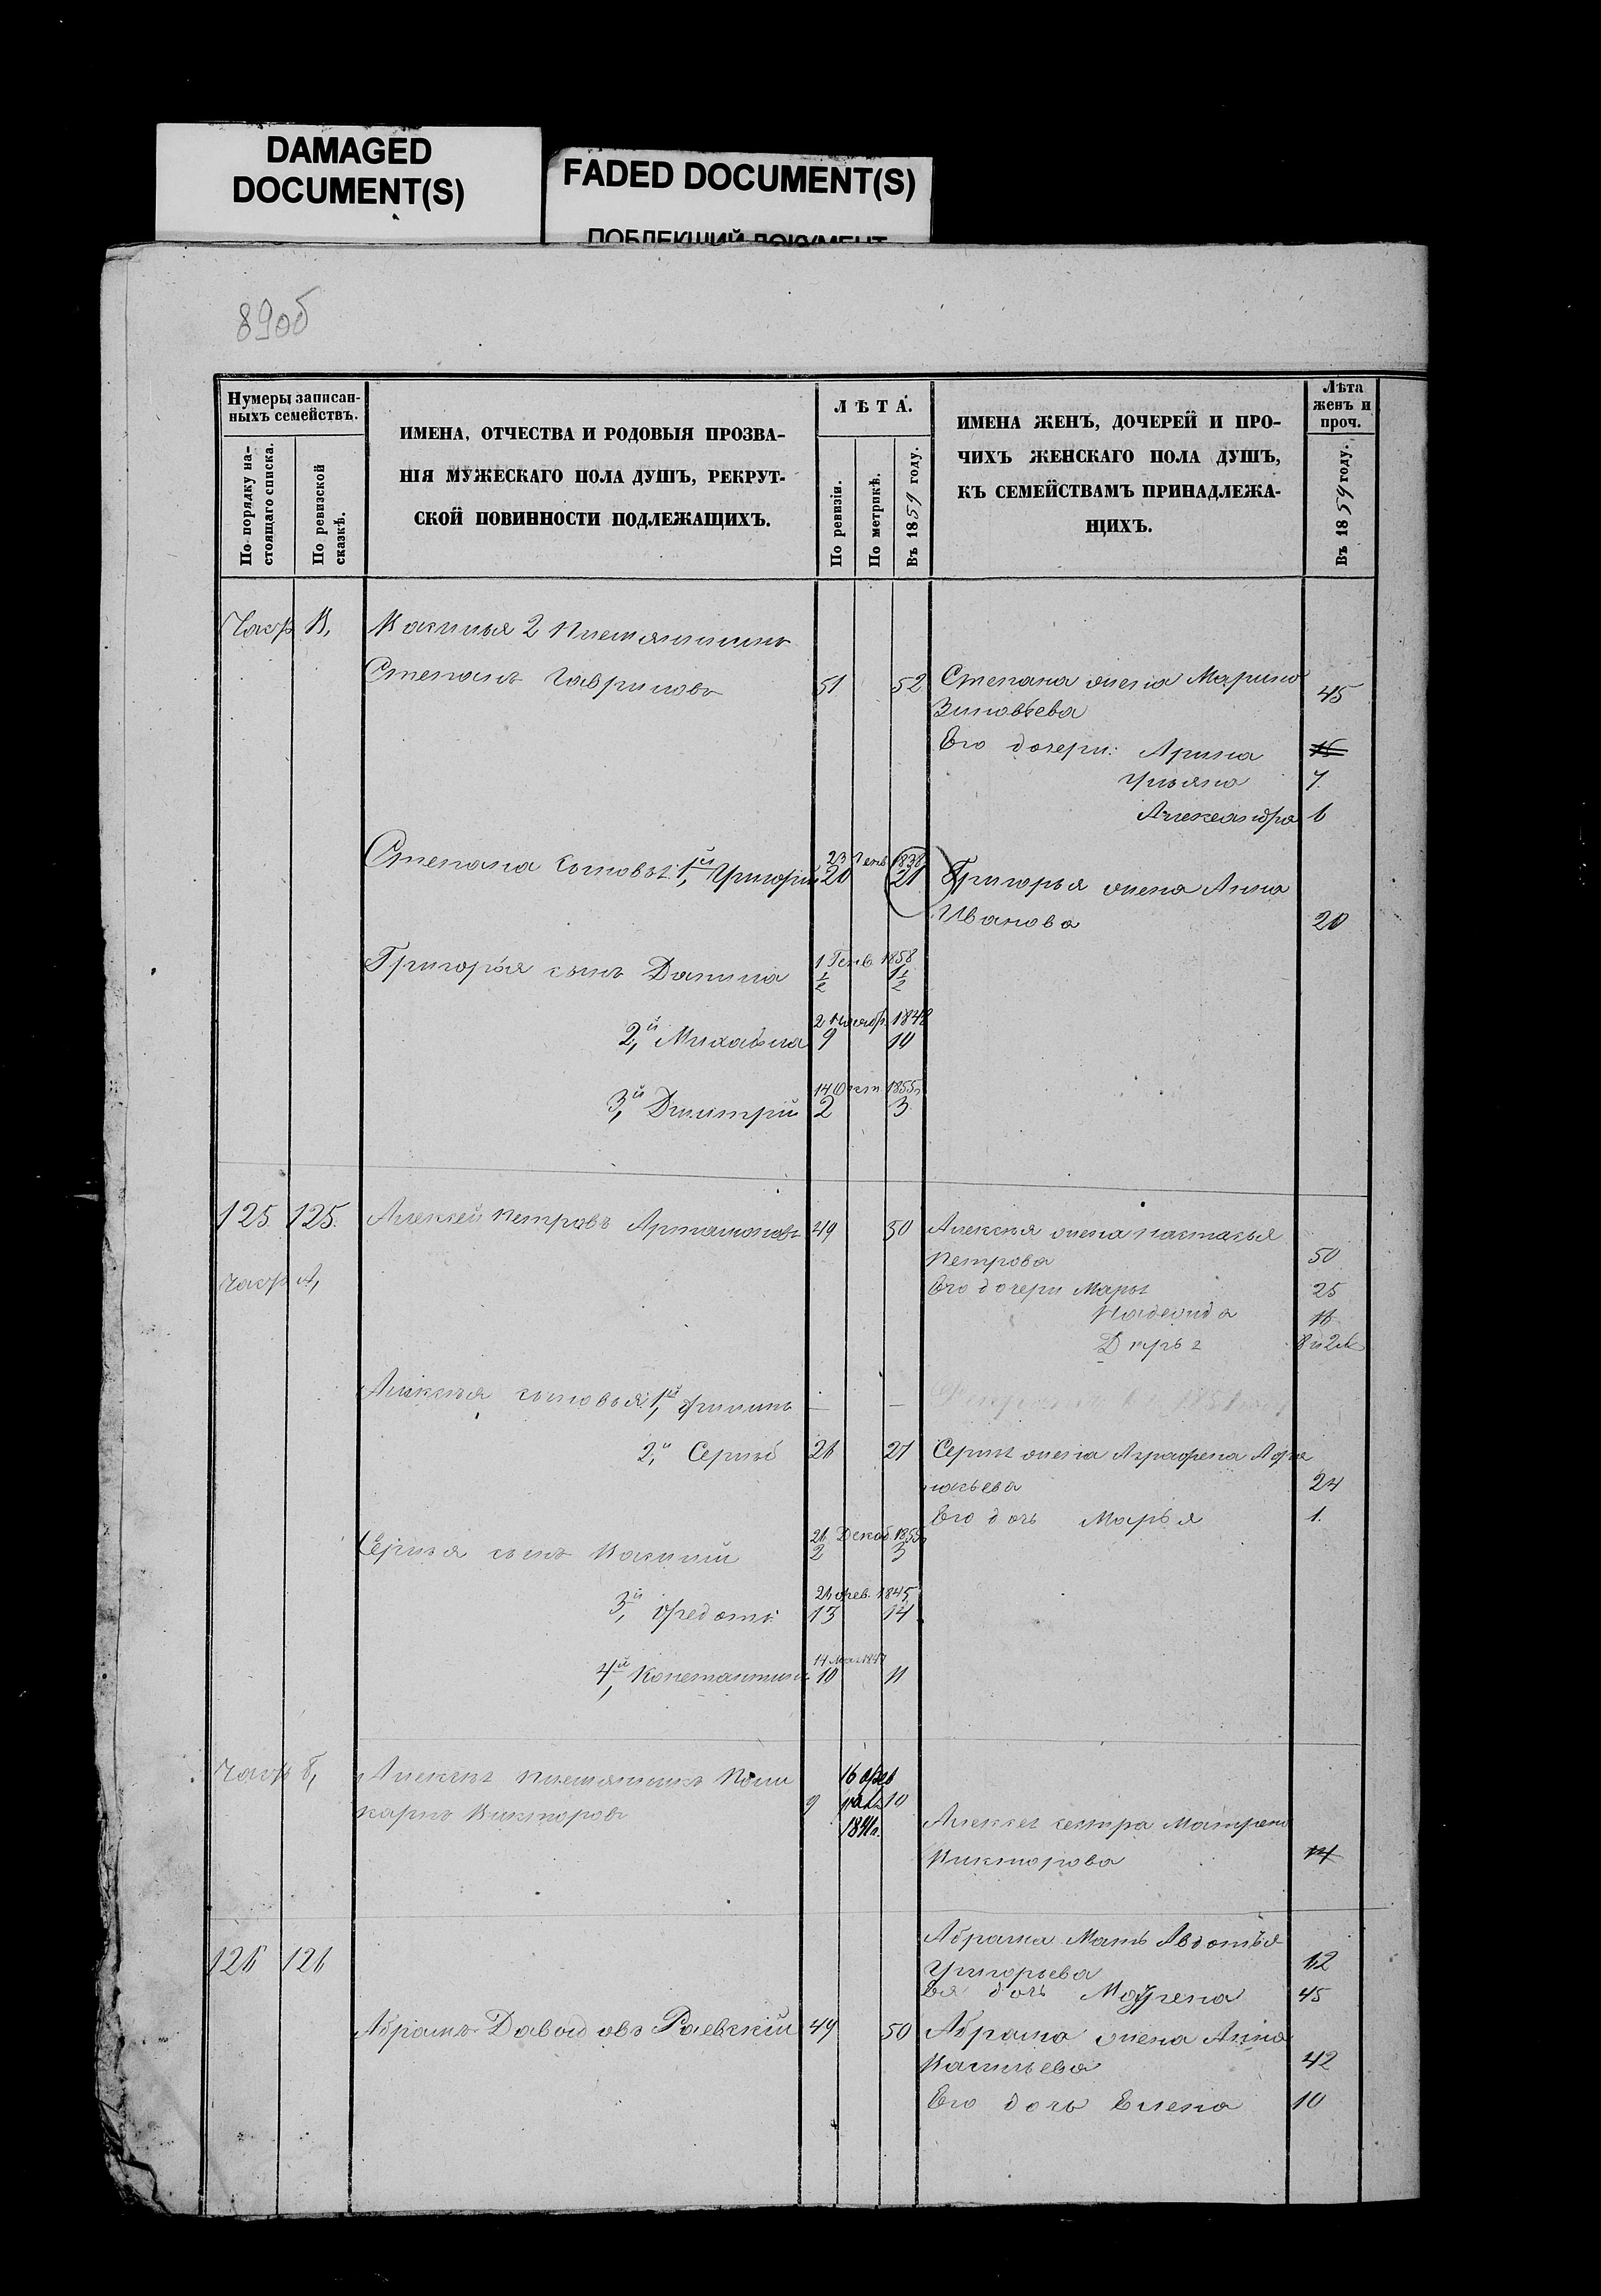 DAMAGED
DOCUMENT(S)
FADED DOCUMENT(S)
ПОБЛЕКШИЙ ДОКУМЕНТ
89об
Нумеры записан-
ныхъ семействъ.
По порядку на-
стоящаго списка.
По ревизской
сказкѣ.
ИМЕНА, ОТЧЕСТВА И РОДОВЫЯ ПРОЗВА-
НІЯ МУЖЕСКАГО ПОЛА ДУШЪ, РЕКРУТ-
СКОЙ ПОВИННОСТИ ПОДЛЕЖАЩИХЪ.
ЛѢТА.
По ревизіи.
По метрикѣ.
Въ 1859 году.
ИМЕНА ЖЕНЪ, ДОЧЕРЕЙ И ПРО-
ЧИХЪ ЖЕНСКАГО ПОЛА ДУШЪ,
КЪ СЕМЕЙСТВАМЪ ПРИНАДЛЕЖА-
ЩИХЪ.
Лѣта
женъ и
проч.
Въ 1859 году.
В, 2 племянникъ
Степанъ Гавриловъ 51 52 Степана жена Марина 45
Зиновьева
Его дочери: Арина 15
Ульяна 7
Александра 6
23 1838
Степана сыновья 1й, Григорій 20 21 Григорья жена Анна
Иванова 20
1 Генв. 1858
Григорья сынъ Данила 1/2 1 1/2
2 1848
2й, Михайла 9 10
14 Окт 1855
3й, Димитрій 2 3
125 125. Алексей Петровъ Артамоновъ 49 50 Алексѣя жена Настасья
Петрова 50
А,
Его дочери Марья 25
Надежда 16
Дарья
Алексѣя сыновья 1й, Филипъ — —
2й, Сергѣй 26 27 Сергѣя жена Аграфена Афа
насьева 24
Его дочь Марья 1.
26 Декаб. 1855
Сергѣя сынъ Василій 2 3
26 Фев. 1845
3й, Федотъ 13 14
14
4й, Константинъ 10 11
Б, Алексѣя племянникъ Поли
карпъ Викторовъ 9 16 фев 10
Алексѣя сестра Матрена
Викторова 14
Абрама Мать Авдотья
126 126 Григорьева 62
Ея дочь 45
Абрамъ Давыдовъ Раевскій 49 50 Абрама жена Анна
Васильева 42
Его дочь Елена 10